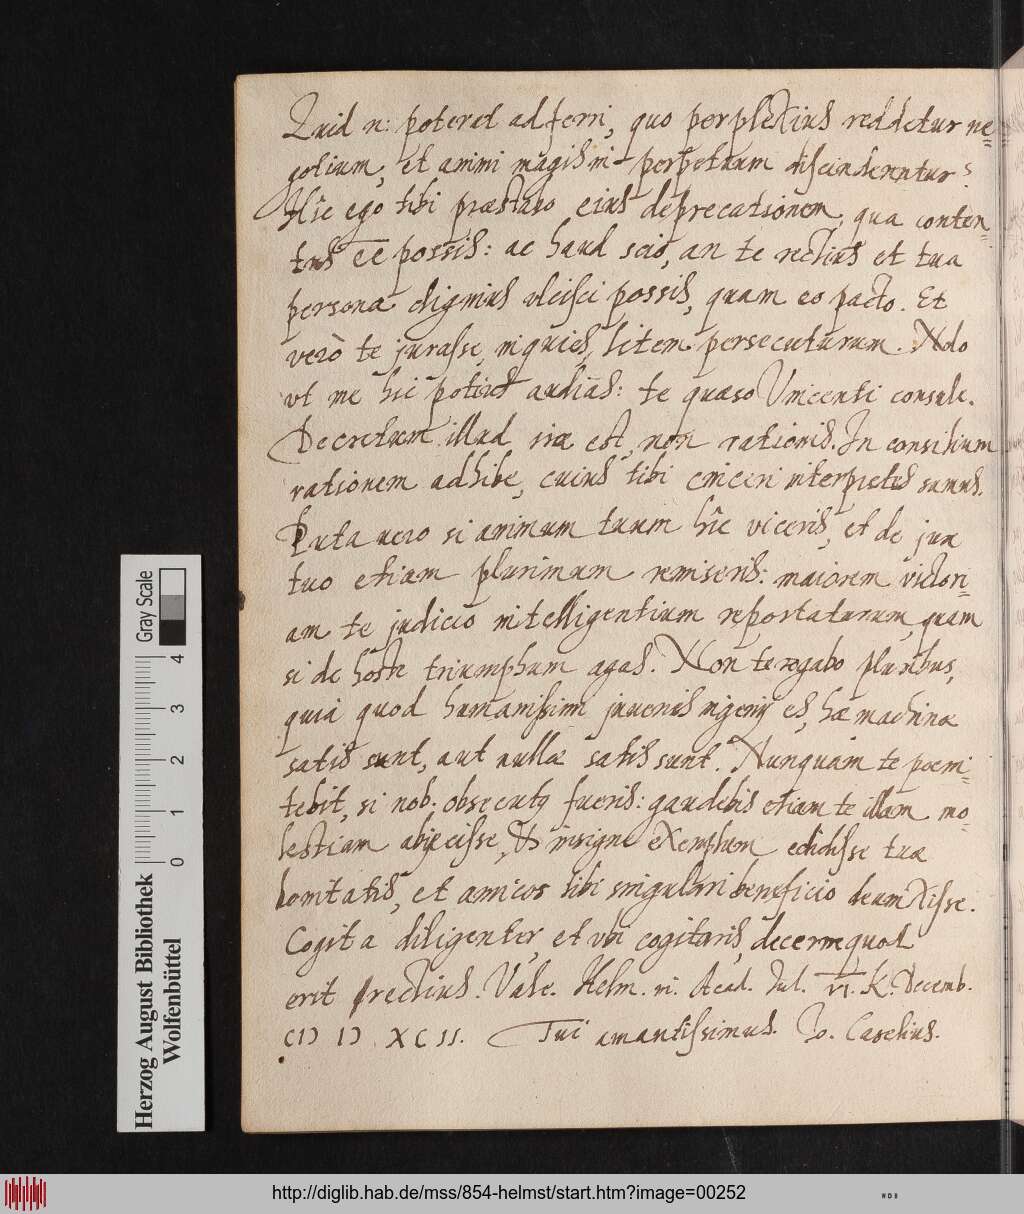 Quid n: poterat adferri, quo perplexius reddetur ne=
gotium, et animi magis in perpetuum discinderentur?
Hic ego tibi praestabo eius deprecationem, qua conten=
tus ēē possis: ac haud scio, an te rectius et tua
persona dignius ulcisci possis, quam eo pacto. Et
verò te jurasse, inquies, litem persecuturum.
ut me hic potius audias: te quaeso Vincenti consule.
Decretum illud irae est, non rationis. In consilium
rationem adhibe, cuius tibi interpretes sumus.
Puta vero si animum tuum hîc viceris, et de jure
tuo etiam plurimum remiseris: maiorem victori=
am te judicio intelligentium reportaturum, quam
si de hoste triumphum agas. Non te rogabo pluribus,
quia quod humanissimi juvenis ingenij es, hae machinae
satis sunt, aut nullae satis sunt. Nunquam te poeni=
tebit, si nob. obsecutus fueris: gaudebis etiam te illam mo=
lestiam abjecisse, & insigne exemplum edidisse tuae
bonitatis, et amicos tibi singulari beneficio deuinxisse.
Cogita diligenter, et ubi cogitaris, decerne quod
erit rectius. Vale. Helm. in. Acad. Jul. VI. K. Decemb.
CIↃ IↃ XCII. Tui amantissimus. Jo. Caselius.
Herzog August Bibliothek
Wolfenbüttel
Gray Scale
0 1 2 3 4
http://diglib.hab.de/mss/854-helmst/start.htm?image=00252
WDB